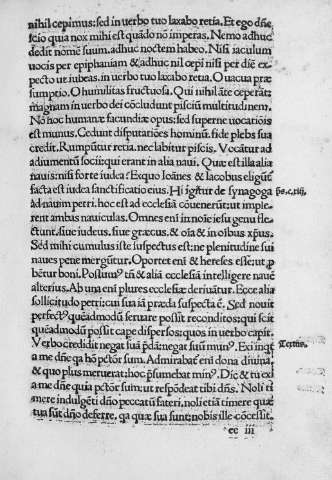 nihil cepimus: sed in uerbo tuo laxabo retia. Et ego dñe
scio qua nox mihi est quãdo nõ imperas. Nemo adhuc
dedit nomẽ suum. adhuc noctem habeo. Nisi iaculum
uocis per epiphaniam & adhuc nil cepi nisi per diẽ ex-
pecto ut iubeas. in uerbo tuo laxabo retia. O uacua præ
sumptio. O humilitas fructuosa. Qui nihil ãte ceperãt:
magnam in uerbo dei cõcludunt pisciũ multitudinem.
Nõ hoc humanæ facundiæ opus: sed supernæ uocatiõis
est munus. Cedunt disputatiões hominũ. fide plebs sua
credit. Rumpũtur retia. nec labitur piscis. Vocãtur ad
adiumentũ socii: qui erant in alia naui. Quæ est illa alia
nauis: nisi forte iudæa? Ex quo Ioãnes & Iacobus eligũt
facta est iudæa sanctificatio eius. Hi igitur de synagoga
ad nauim petri. hoc est ad ecclesiã cõuenerũt: ut imple
rent ambas nauiculas. Omnes eni in noie iesu genu fle
ctunt. siue iudeus. siue græcus. & oia & in oibus xpus.
Sed mihi cumulus iste suspectus est: ne plenitudine sui
naues pene mergãtur. Oportet eni & hereses esse: ut p
bẽtur boni. Possumꝰ tñ & aliã ecclesiã intelligere nauẽ
alterius. Ab una eni plures ecclesiæ deriuãtur. Ecce alia
sollicitudo petri: cui sua iã præda suspecta ẽ. Sed nouit
perfectꝰ quẽadmodũ seruare possit reconditos: qui scit
quẽadmodũ possit cape dispersos: quos in uerbo capit.
Verbo credidit negat suã pdã: negat suũ munꝰ. Exi inqt
a me dñe qa hõ pctõr sum. Admirabat eni dona diuina.
& quo plus meruerat: hoc psumebat minꝰ. Dic & tu exi
a me dñe quia pctõr sum: ut respõdeat tibi dñs. Noli ti
mere indulgẽti dño peccatũ fateri. noli etiã timere quæ
tua sũt dño deferre. qa quæ sua sunt: nobis ille cõcessit.
ee iii